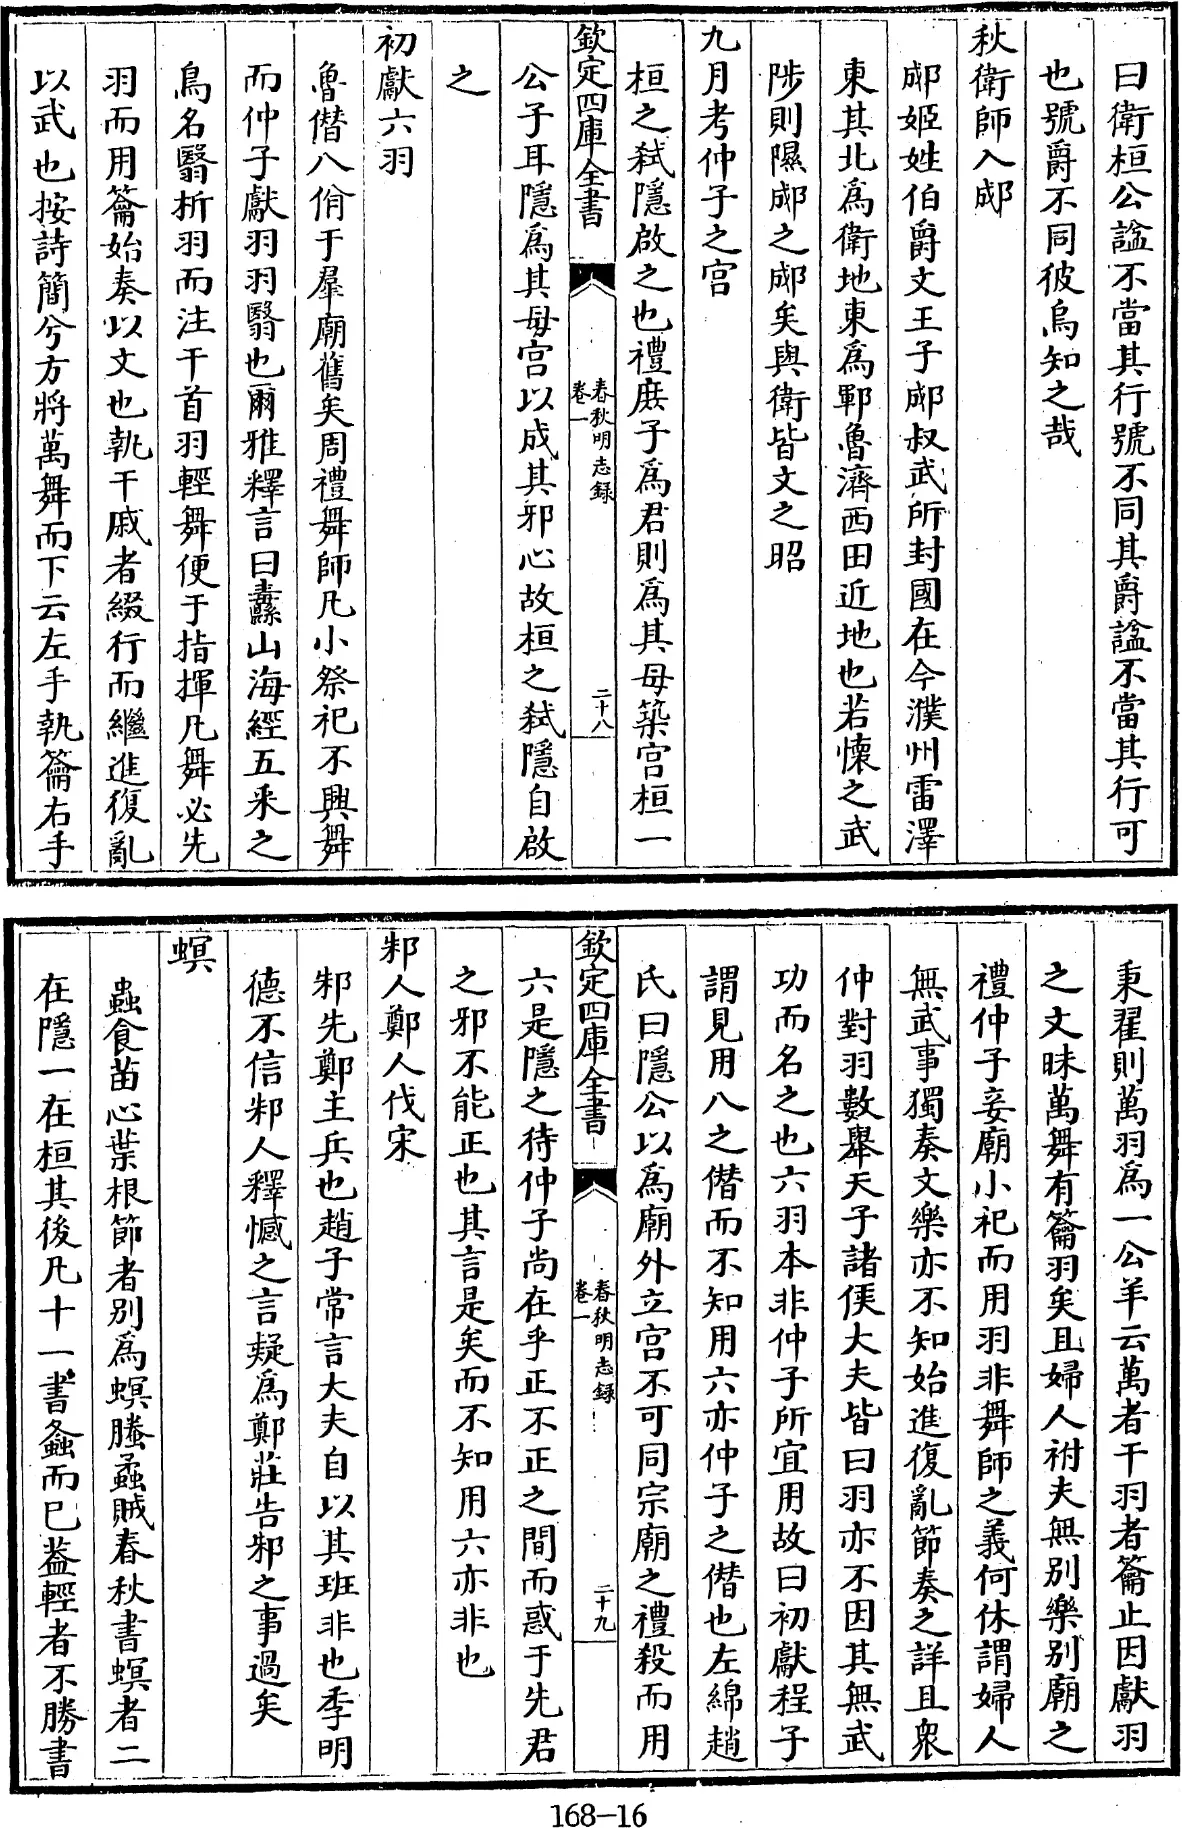 曰衛桓公諡不當其行號不同其爵諡不當其行可
也號爵不同彼烏知之哉
秋衛師入郕
郕姬姓伯爵文王子郕叔武所封國在今濮州雷澤
東其北為衛地東為鄆魯濟西田近地也若懷之武
陟則隰郕之郕矣與衛皆文之昭
九月考仲子之宮
桓之弑隱啟之也禮庶子為君則為其母築宮桓一
欽定四庫全書
春秋明志錄
卷一
二十八
公子耳隱為其母宮以成其邪心故桓之弑隱自啟
之
初獻六羽
魯僭八佾于羣廟舊矣周禮舞師凡小祭祀不興舞
而仲子獻羽羽翳也爾雅釋言曰纛山海經五采之
鳥名翳析羽而注干首羽輕舞便于指揮凡舞必先
羽而用籥始奏以文也執干戚者綴行而繼進復亂
以武也按詩簡兮方將萬舞而下云左手執籥右手
秉翟則萬羽為一公羊云萬者干羽者籥止因獻羽
之文昧萬舞有籥羽矣且婦人祔夫無別樂別廟之
禮仲子妾廟小祀而用羽非舞師之義何休謂婦人
無武事獨奏文樂亦不知始進復亂節奏之詳且衆
仲對羽數舉天子諸侯大夫皆曰羽亦不因其無武
功而名之也六羽本非仲子所宜用故曰初獻程子
謂見用八之僭而不知用六亦仲子之僭也左綿趙
氏曰隱公以為廟外立宮不可同宗廟之禮殺而用
欽定四庫全書
春秋明志錄
卷一
二十九
六是隱之待仲子尚在乎正不正之間而惑于先君
之邪不能正也其言是矣而不知用六亦非也
邾人鄭人伐宋
邾先鄭主兵也趙子常言大夫自以其班非也季明
德不信邾人釋憾之言疑為鄭莊告邾之事過矣
螟
蟲食苗心葉根節者別為螟螣蟊賊春秋書螟者二
在隱一在桓其後凡十一書螽而已葢輕者不勝書
168-16